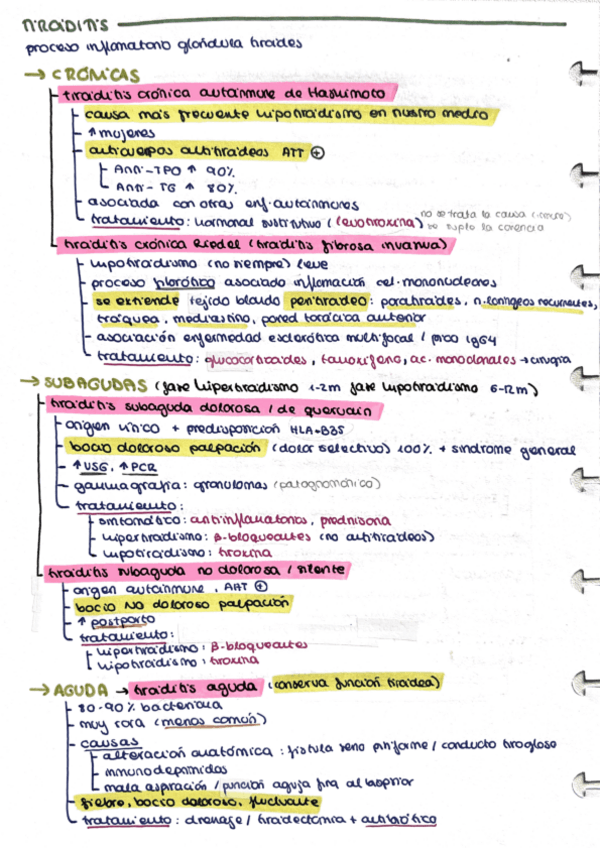 TIROIDITIS
proceso inflamatorio glándula tiroides
→ CRÓNICAS
tiroiditis crónica autoinmune de Hashimoto
causa más frecuente hipotiroidismo en nuestro medio
↑ mujeres
anticuerpos antitiroideos ATT ⊕
Anti-TPO ↑ 90%
Anti-TG ↑ 80%.
asociada con otras enf. autoinmunes
tratamiento: hormonal sustitutivo (levotiroxina) no se trata la causa (inmune)
se suple la carencia
tiroiditis crónica Riedel (tiroiditis fibrosa invasiva)
hipotiroidismo (no siempre) leve
proceso fibrótico asociado inflamación cel. mononucleares
se extiende tejido blando peritiroideo: paratiroides, n. laríngeos recurrentes,
tráquea, mediastino, pared torácica anterior
asociación enfermedad esclerótica multifocal / proc IgG4
tratamiento: glucocorticoides, tamoxifeno, ac. monoclonales → cirugía
→ SUBAGUDAS (fase hipertiroidismo 1-2m fase hipotiroidismo 6-12m)
tiroiditis subaguda dolorosa / de quervain
origen vírico + predisposición HLA-B35
bocio doloroso palpación (dolor selectivo) 100% + síndrome general
↑ VSG, ↑ PCR
gammagrafía: granulomas (patognomónico)
tratamiento:
sintomático: antiinflamatorios, prednisona
hipertiroidismo: β-bloqueantes (no antitiroideos)
hipotiroidismo: tiroxina
tiroiditis subaguda no dolorosa / silente
origen autoinmune, AAT ⊕
bocio NO doloroso palpación
↑ postparto
tratamiento:
hipertiroidismo: β-bloqueantes
hipotiroidismo: tiroxina
→ AGUDA → tiroiditis aguda (conserva función tiroidea)
80-90% bacteriana
muy rara (menos común)
causas
alteración anatómica: fístula seno piriforme / conducto tirogloso
inmunodeprimidos
mala aspiración / punción aguja fina al biopsiar
fiebre, bocio doloroso, fluctuante
tratamiento: drenaje / tiroidectomía + antibiótico